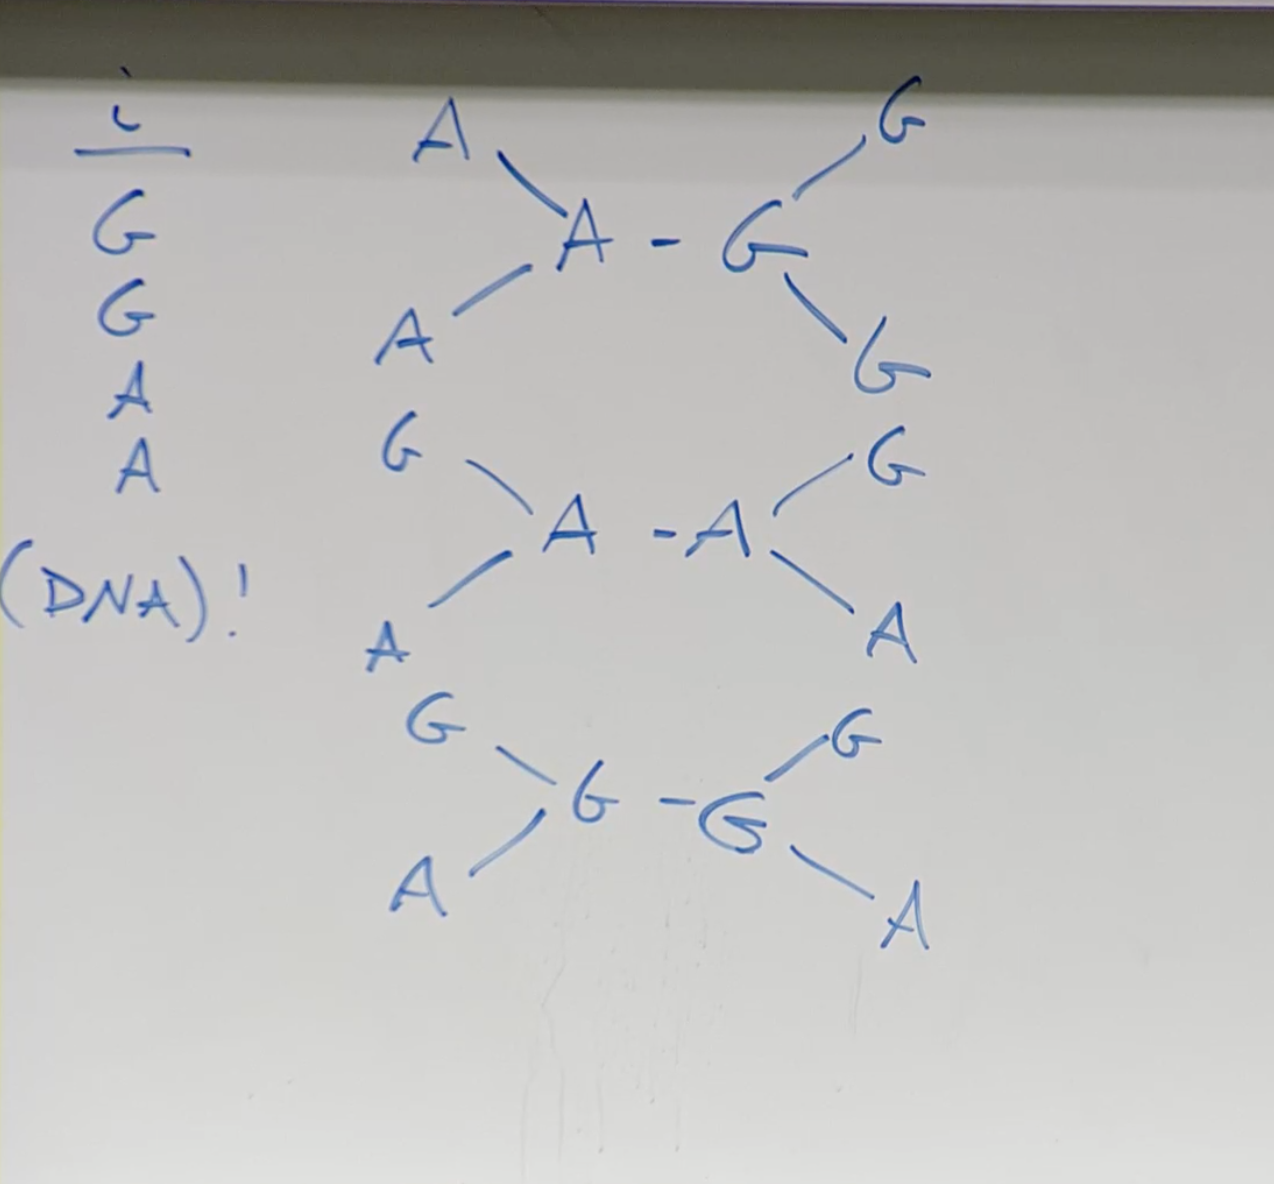 i
G
G
A
A
(DNA)!
A G
A - G
A G
G G
A - A
A A
G G
G - G
A A